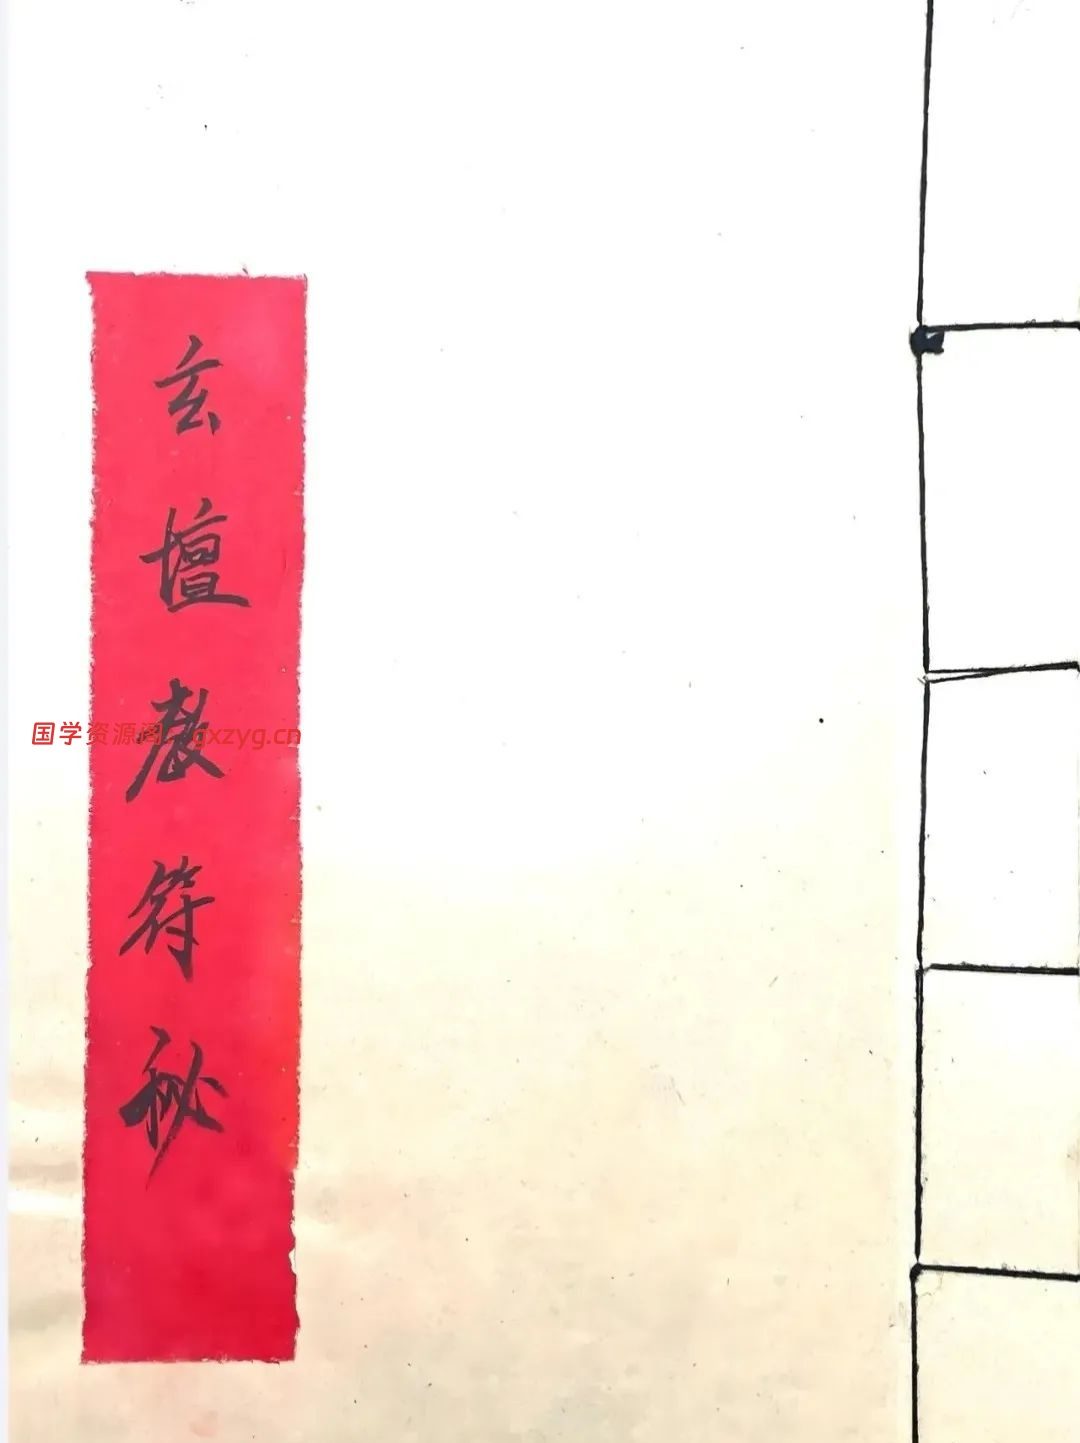 玄壇教符秘
国学资源阁 gxzyg.cn